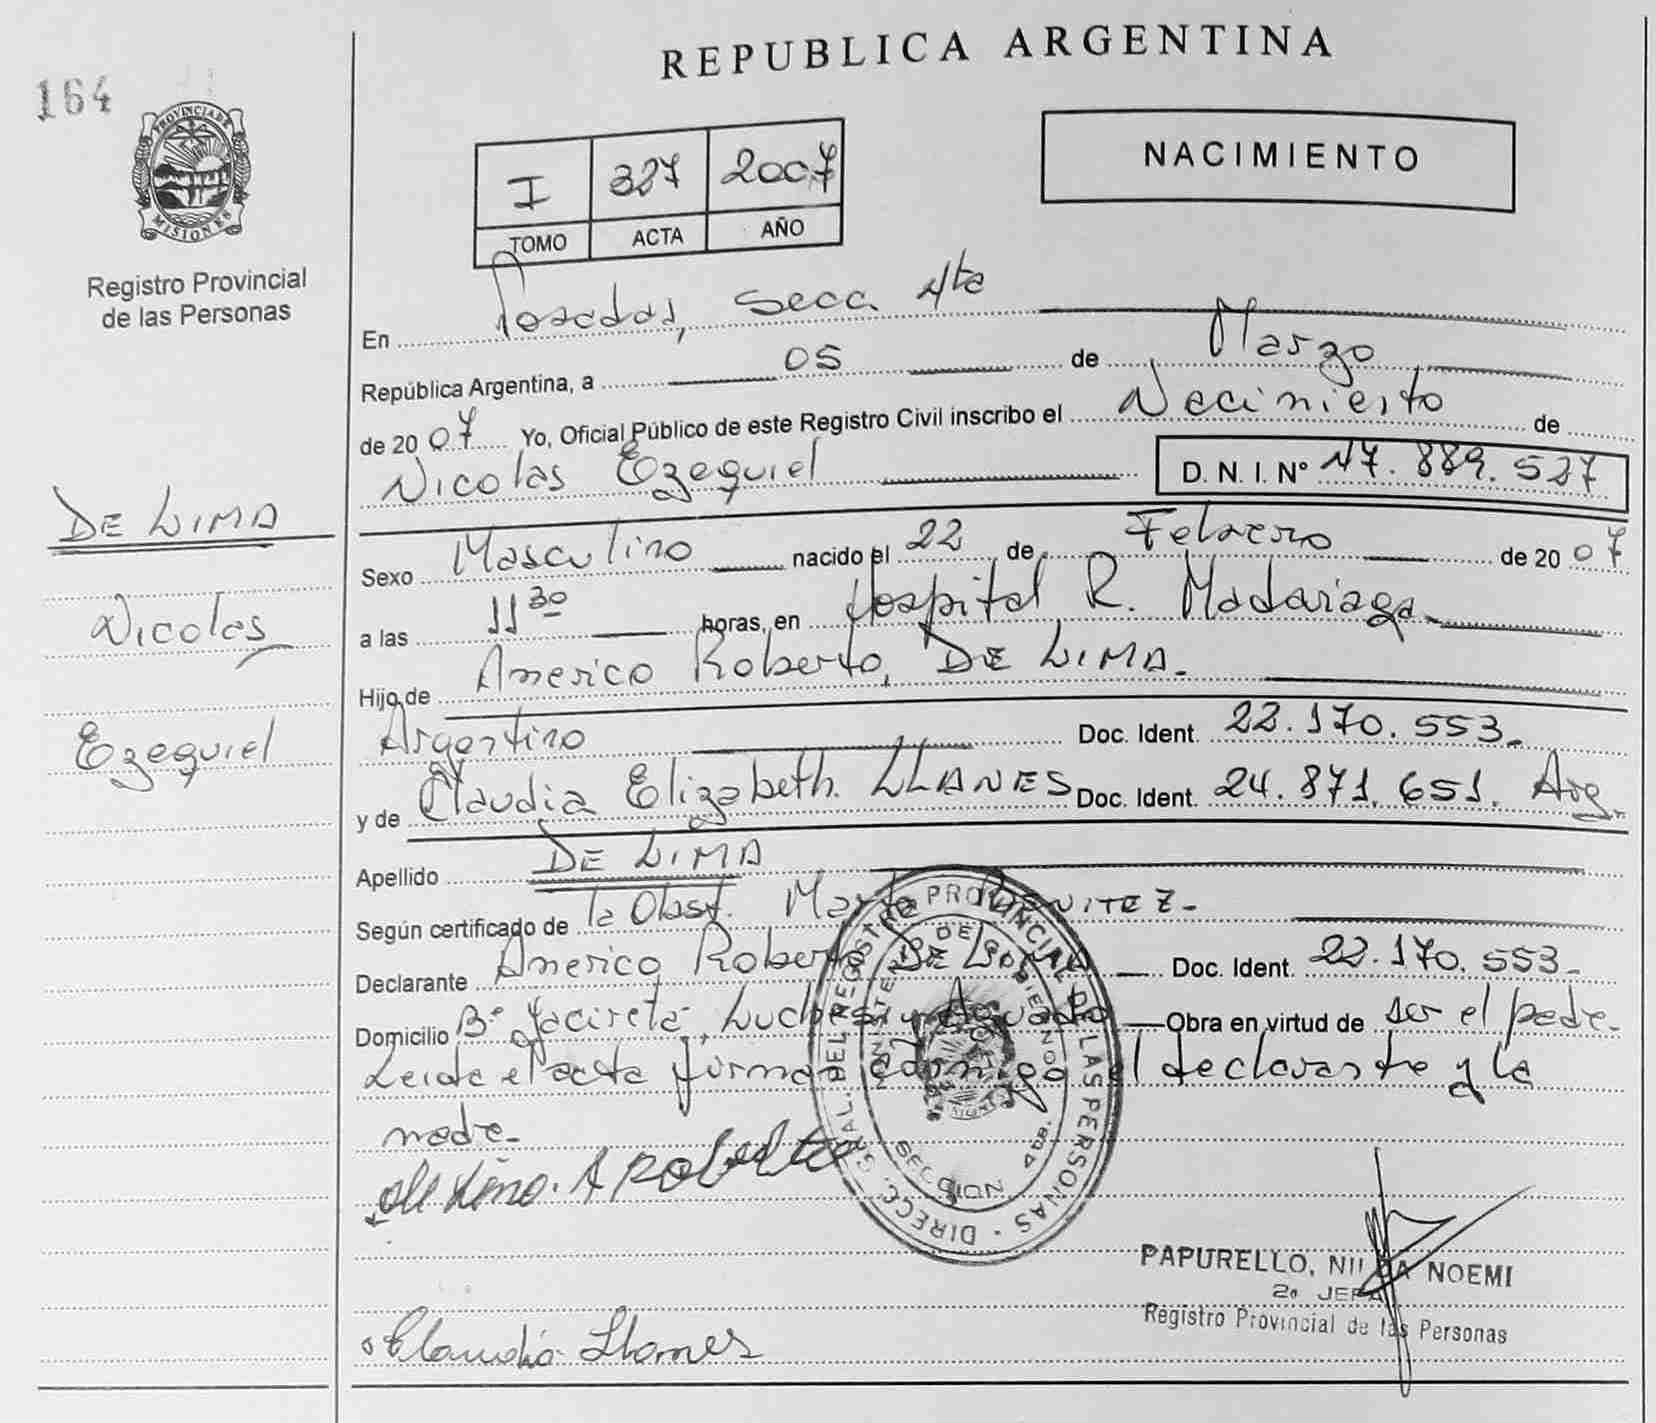 REPUBLICA ARGENTINA
164
PROVINCIA DE MISIONES
Registro Provincial
de las Personas
I 327 2007
TOMO ACTA AÑO
NACIMIENTO
En Posadas, Secc. 4ta
República Argentina, a 05 de Marzo
de 2007 Yo, Oficial Público de este Registro Civil inscribo el Nacimiento de
Nicolas Ezequiel D. N. I. Nº 47.889.527
DE LIMA
Nicolas
Ezequiel
Sexo Masculino nacido el 22 de Febrero de 2007
a las 11 30 horas, en Hospital R. Madariaga
Hijo de Americo Roberto, DE LIMA.
Argentino Doc. Ident. 22.170.553.
y de Claudia Elizabeth LLANES Doc. Ident. 24.871.651. Arg.
Apellido DE LIMA
Según certificado de la Obst. Marta BENITEZ.
Declarante Americo Roberto DE LIMA Doc. Ident. 22.170.553.
Domicilio Bº Yacireta, Luchesi y Aguado Obra en virtud de ser el padre.
Leida el acta firman conmigo el declarante y la
madre.
A Roberto
DIRECC. GRAL. DEL REGISTRO PROVINCIAL DE LAS PERSONAS
MINISTERIO DE GOBIERNO
SECCION 4ta.
PAPURELLO, NILDA NOEMI
2a JEFA
Registro Provincial de las Personas
Claudia Llanes